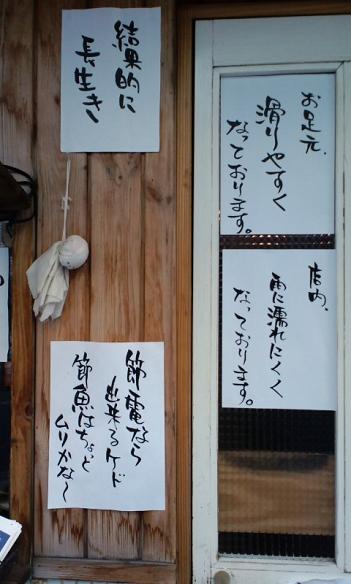 結果的に
長生き
お足元、
滑りやすく
なっております。
店内、
雨に濡れにくく
なっております。
節電なら
出来るケド
節魚はちょっと
ムリかな～